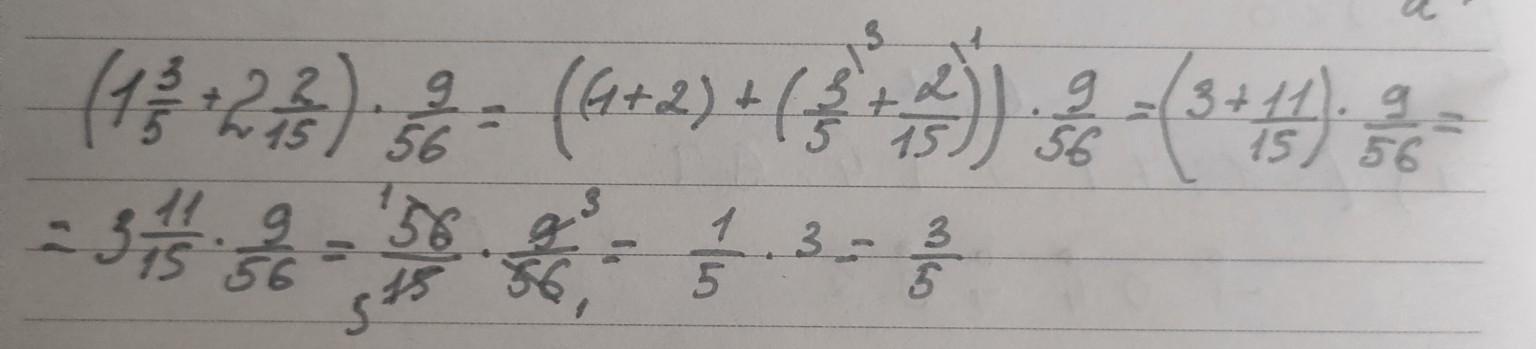 (1 3/5 + 2 2/15) · 9/56 = ((1+2) + (3\3/5 + 2\1/15)) · 9/56 = (3 + 11/15) · 9/56 =
= 3 11/15 · 9/56 = 1 56/15 5 · 9 3/56 1 = 1/5 · 3 = 3/5